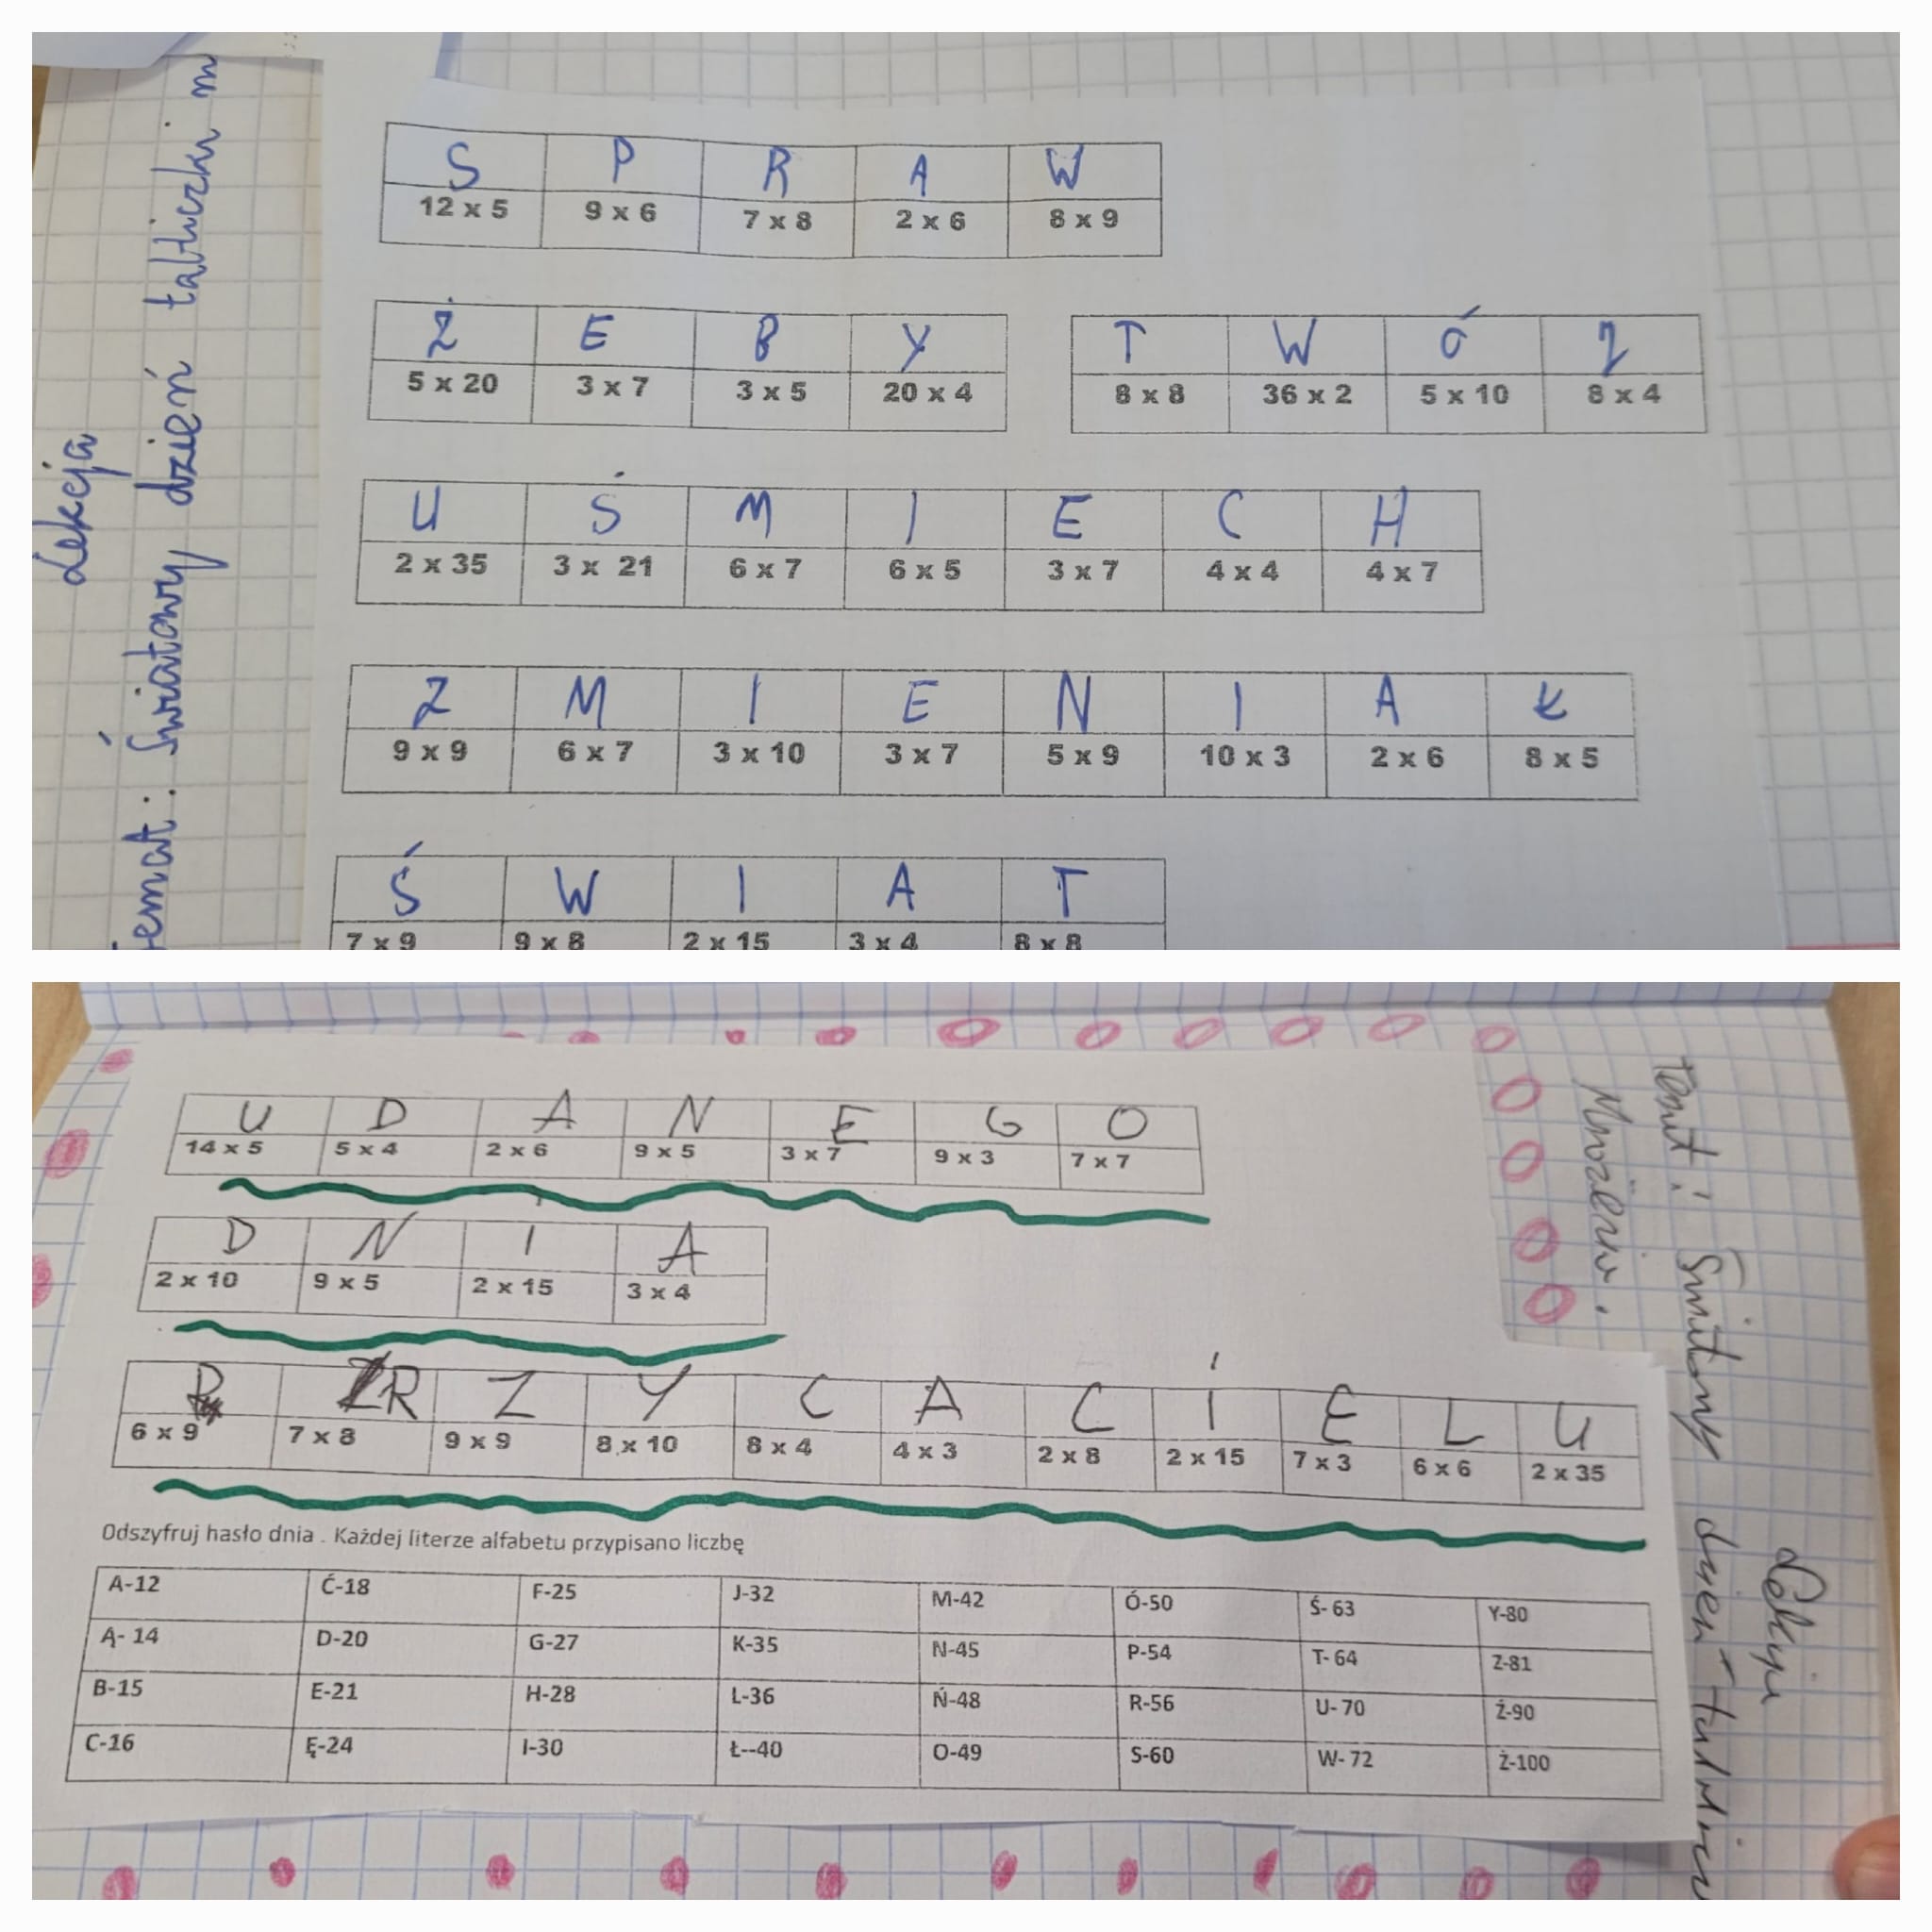 Lekcja
Temat: Światowy dzień tabliczki m
S P R A W
12 x 5 9 x 6 7 x 8 2 x 6 8 x 9
Ż E B Y T W Ó J
5 x 20 3 x 7 3 x 5 20 x 4 8 x 8 36 x 2 5 x 10 8 x 4
U Ś M I E C H
2 x 35 3 x 21 6 x 7 6 x 5 3 x 7 4 x 4 4 x 7
Z M I E N I A Ł
9 x 9 6 x 7 3 x 10 3 x 7 5 x 9 10 x 3 2 x 6 8 x 5
Ś W I A T
7 x 9 9 x 8 2 x 15 3 x 4 8 x 8
U D A N E G O
14 x 5 5 x 4 2 x 6 9 x 5 3 x 7 9 x 3 7 x 7
D N I A
2 x 10 9 x 5 2 x 15 3 x 4
P R Z Y C A C I E L U
6 x 9 7 x 8 9 x 9 8 x 10 8 x 4 4 x 3 2 x 8 2 x 15 7 x 3 6 x 6 2 x 35
Odszyfruj hasło dnia . Każdej literze alfabetu przypisano liczbę
A-12 Ć-18 F-25 J-32 M-42 Ó-50 Ś- 63 Y-80
Ą- 14 D-20 G-27 K-35 N-45 P-54 T- 64 Z-81
B-15 E-21 H-28 L-36 Ń-48 R-56 U- 70 Ź-90
C-16 Ę-24 I-30 Ł--40 O-49 S-60 W- 72 Ż-100